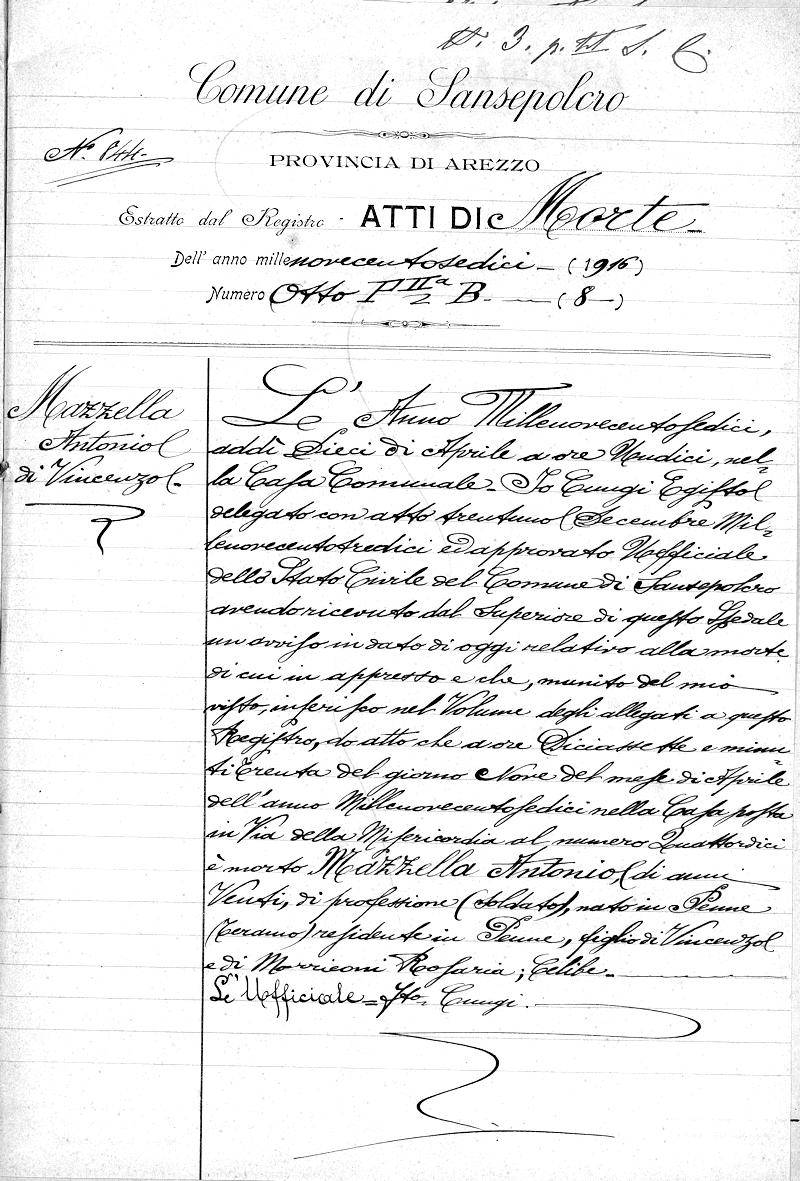 N. 3. p. II S. C.
Comune di Sansepolcro
N.º 844.
PROVINCIA DI AREZZO
Estratto dal Registro - ATTI DI Morte
Dell' anno millenovecentosedici - (1916)
Numero Otto P II a 2 B. - (8 -)
Mazzella
Antonio
di Vincenzo
L' Anno Millenovecentosedici,
addì Dieci di Aprile a ore Undici, nel-
la Casa Comunale - Io Cungi Egisto
delegato con atto trentuno Decembre Mil-
lenovecentotredici ed approvato Uefficiale
dello Stato Civile del Comune di Sansepolcro
avendo ricevuto dal Superiore di questo Spedale
un avviso in dato di oggi relativo alla morte
di cui in appresso e che, munito del mio
visto, inserisco nel Volume degli allegati a questo
Registro, do atto che a ore Diciassette e minu-
ti Trenta del giorno Nove del mese di Aprile
dell' anno Millenovecentosedici nella Casa posta
in Via della Misericordia al numero Quattordici
è morto Mazzella Antonio, di anni
Venti, di professione (soldato), nato in Penne
(Teramo) residente in Penne, figlio di Vincenzo
e di Marrieoni Rosaria; Celibe.
L' Ufficiale = Fto. Cungi.